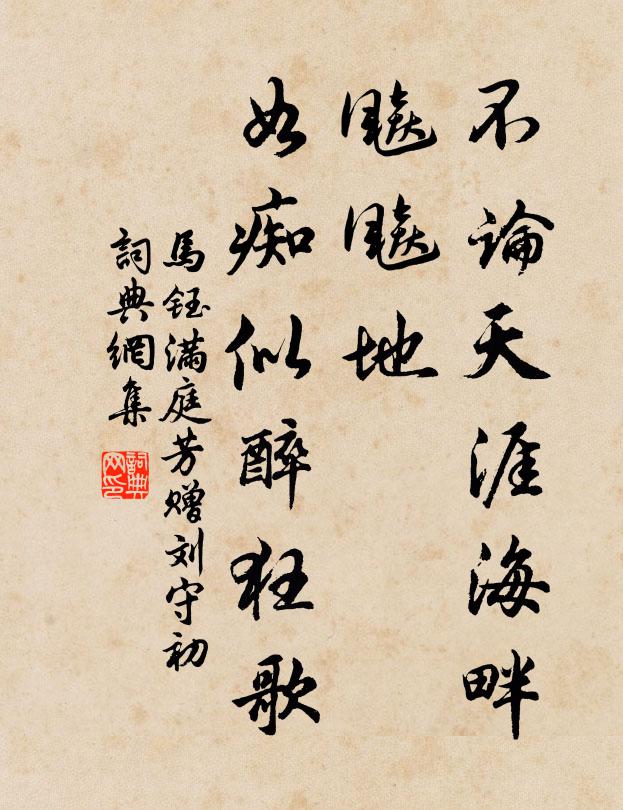 不論天涯海畔
飈飈地
如痴似醉狂歌
馬鈺滿庭芳贈刘守初
詞典網集
詞典网印